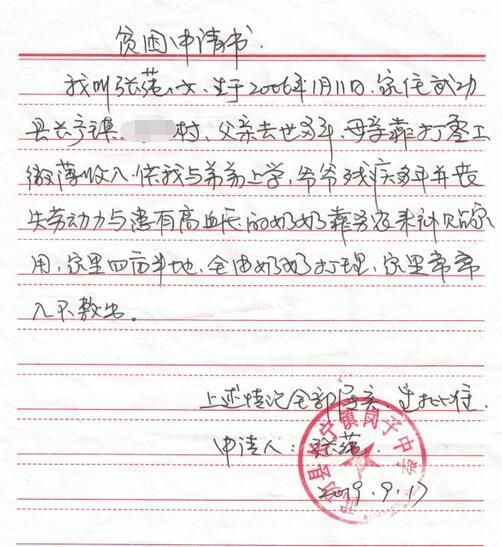 贫困申请书
我叫张蕊,女,生于2006年1月11日,家住武功
县长宁镇 村,父亲去世多年,母亲靠打零工
微薄收入供我与弟弟上学,爷爷残疾多年并丧
失劳动力与患有高血压的奶奶靠务农来补贴家
用,家里四亩半地,全由奶奶打理,家里常常
入不敷出。
上述情况全部属实,望批准
申请人:张蕊
2019.9.17
武功县长宁镇岗子中学